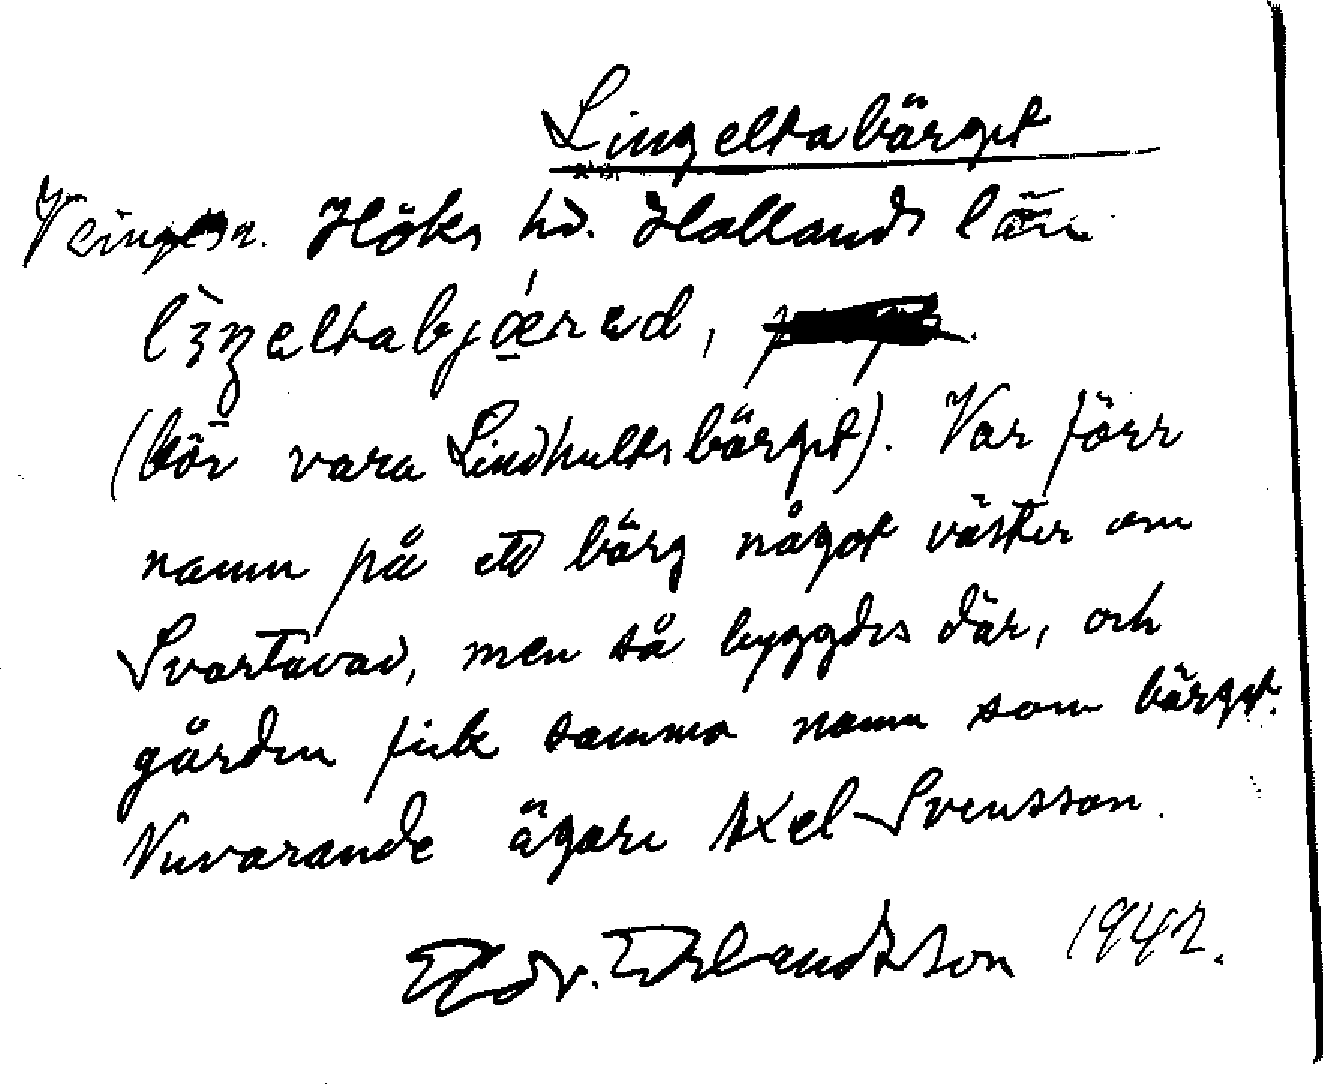 Lingeltabärget
Veinge sn. Höks hd. Hallands län
(bör vara Lindhultsbärget). Var förr
namn på ett bärg något väster om
Svartavad, men så byggdes där, och
gården fick samma namn som bärget.
Nuvarande ägare Axel Svensson.
Edv. Erlandsson 1942.